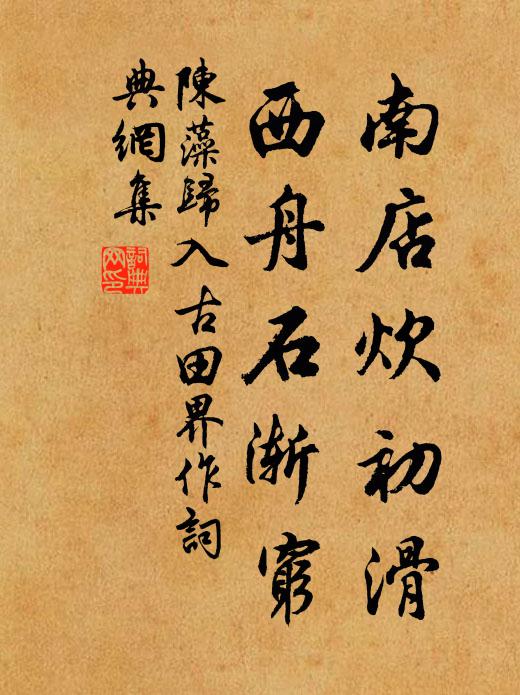 南店炊初滑
西舟石漸窮
陳藻歸入古田界作詞
典網集
詞典網印